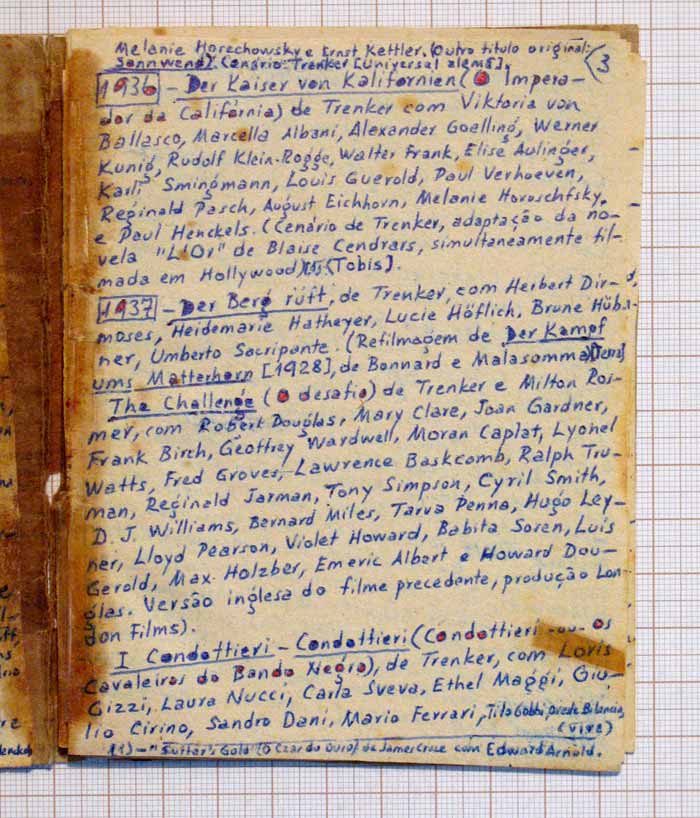 Melanie Horechowsky e Ernst Kettler. (Outro titulo original:
Sonnwend). Cenário: Trenker [Universal alemã].
3
1936 - Der Kaiser von Kalifornien (O Impera-
dor da Califórnia) de Trenker com Viktoria von
Ballasco, Marcella Albani, Alexander Goelling, Werner
Kunig, Rudolf Klein-Rogge, Walter Frank, Elise Aulinger,
Karli Smingmann, Louis Guerold, Paul Verhoeven,
Reginald Pasch, August Eichhorn, Melanie Horoschfsky,
e Paul Henckels. (Cenário de Trenker, adaptação da no-
vela "L'Or" de Blaise Cendrars, simultaneamente fil-
mada em Hollywood) [Tobis].
1937 - Der Berg rüft, de Trenker, com Herbert Dir-
moses, Heidemarie Hatheyer, Lucie Höflich, Brune Hüb-
ner, Umberto Sacripante. (Refilmagem de Der Kampf
ums Matterhorn [1928], de Bonnard e Malasomma)
The Challenge (O desafio) de Trenker e Milton Ros-
mer, com Robert Douglas, Mary Clare, Joan Gardner,
Frank Birch, Geoffrey Wardwell, Moran Caplat, Lyonel
Watts, Fred Groves, Lawrence Baskcomb, Ralph Tru-
man, Reginald Jarman, Tony Simpson, Cyril Smith,
D. J. Williams, Bernard Miles, Tarva Penna, Hugo Ley-
ner, Lloyd Pearson, Violet Howard, Babita Soren, Luis
Gerold, Max Holzber, Emeric Albert e Howard Dou-
glas. Versão inglesa do filme precedente, produção Lon-
don Films).
I Condottieri - Condottieri (Condottieri -ou- os
Cavaleiros do Bando Negro), de Trenker, com Loris
Gizzi, Laura Nucci, Carla Sveva, Ethel Maggi, Giu-
lio Cirino, Sandro Dani, Mario Ferrari, Tito Gobbi,
(vire)
(1) - "Sutter's Gold (O Czar do Ouro) de James Cruze com Edward Arnold.